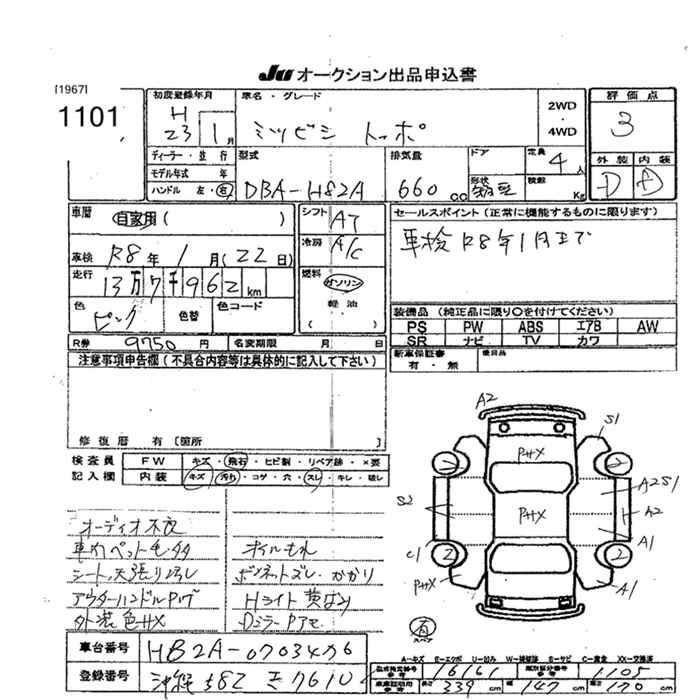 JU オークション出品申込書
[1967]
1101
初度登録年月
H 23 1月
車名・グレード
ミツビシ トッポ
2WD・4WD
評価点
3
外装 内装
D D
ディーラー・並行
モデル年式 年
ハンドル 左・右
型式
DBA-H82A
排気量
660 cc
ドア
形状
定員
4人
積数 Kg
車歴
自家用( )
車検 R8年1月(22日)
走行
13万7千962km
色
ピンク
色替
色コード
シフト AT
冷房 A/C
燃料
ガソリン
軽油
( )
セールスポイント(正常に機能するものに限ります)
車検R8年1月まで
装備品(純正品に限り○を付けてください)
PS PW ABS エアB AW
SR ナビ TV カワ
新車保証書 後日品
有・無
R券 9750円
名変期限 月 日
注意事項申告欄(不具合内容等は具体的に記入して下さい)
修復歴 有〔箇所 〕
検査員 FW キズ・飛石・ヒビ割・リペア跡・×要
記入欄 内装 キズ・汚れ・コゲ・穴・スレ・キレ・破レ
オーディオ不良
車内ペット毛
シート、天張り
アウターハンドル
外装色ハゲ
オイルもれ
ボンネットズレ・かかり
Hライト黄ばみ
A2
S1
PハX
PハX
A2S1
A2
S2
A1
C1
2
2
PハX
A1
有
A-キズ E-エクボ U-凹み W-補修跡 S-サビ C-腐食 XX-交換済
車台番号 H82A-0703476
登録番号 沖縄 582
型式指定番号 16161
類別区分番号 1105
長さ 339cm 幅 147cm 高さ 170cm